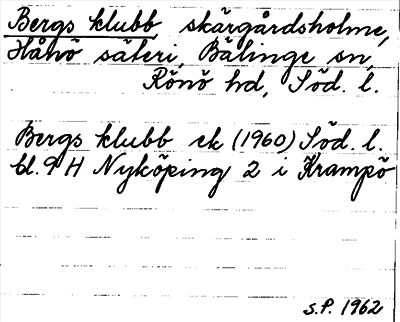 Bergs klubb, skärgårdsholme,
Hånö säteri, Bälinge sn,
Rönö hd, Söd. l.
Bergs klubb ek (1960) Söd. l.
bl. 9 H Nyköping 2 i Krampö
S.P. 1962